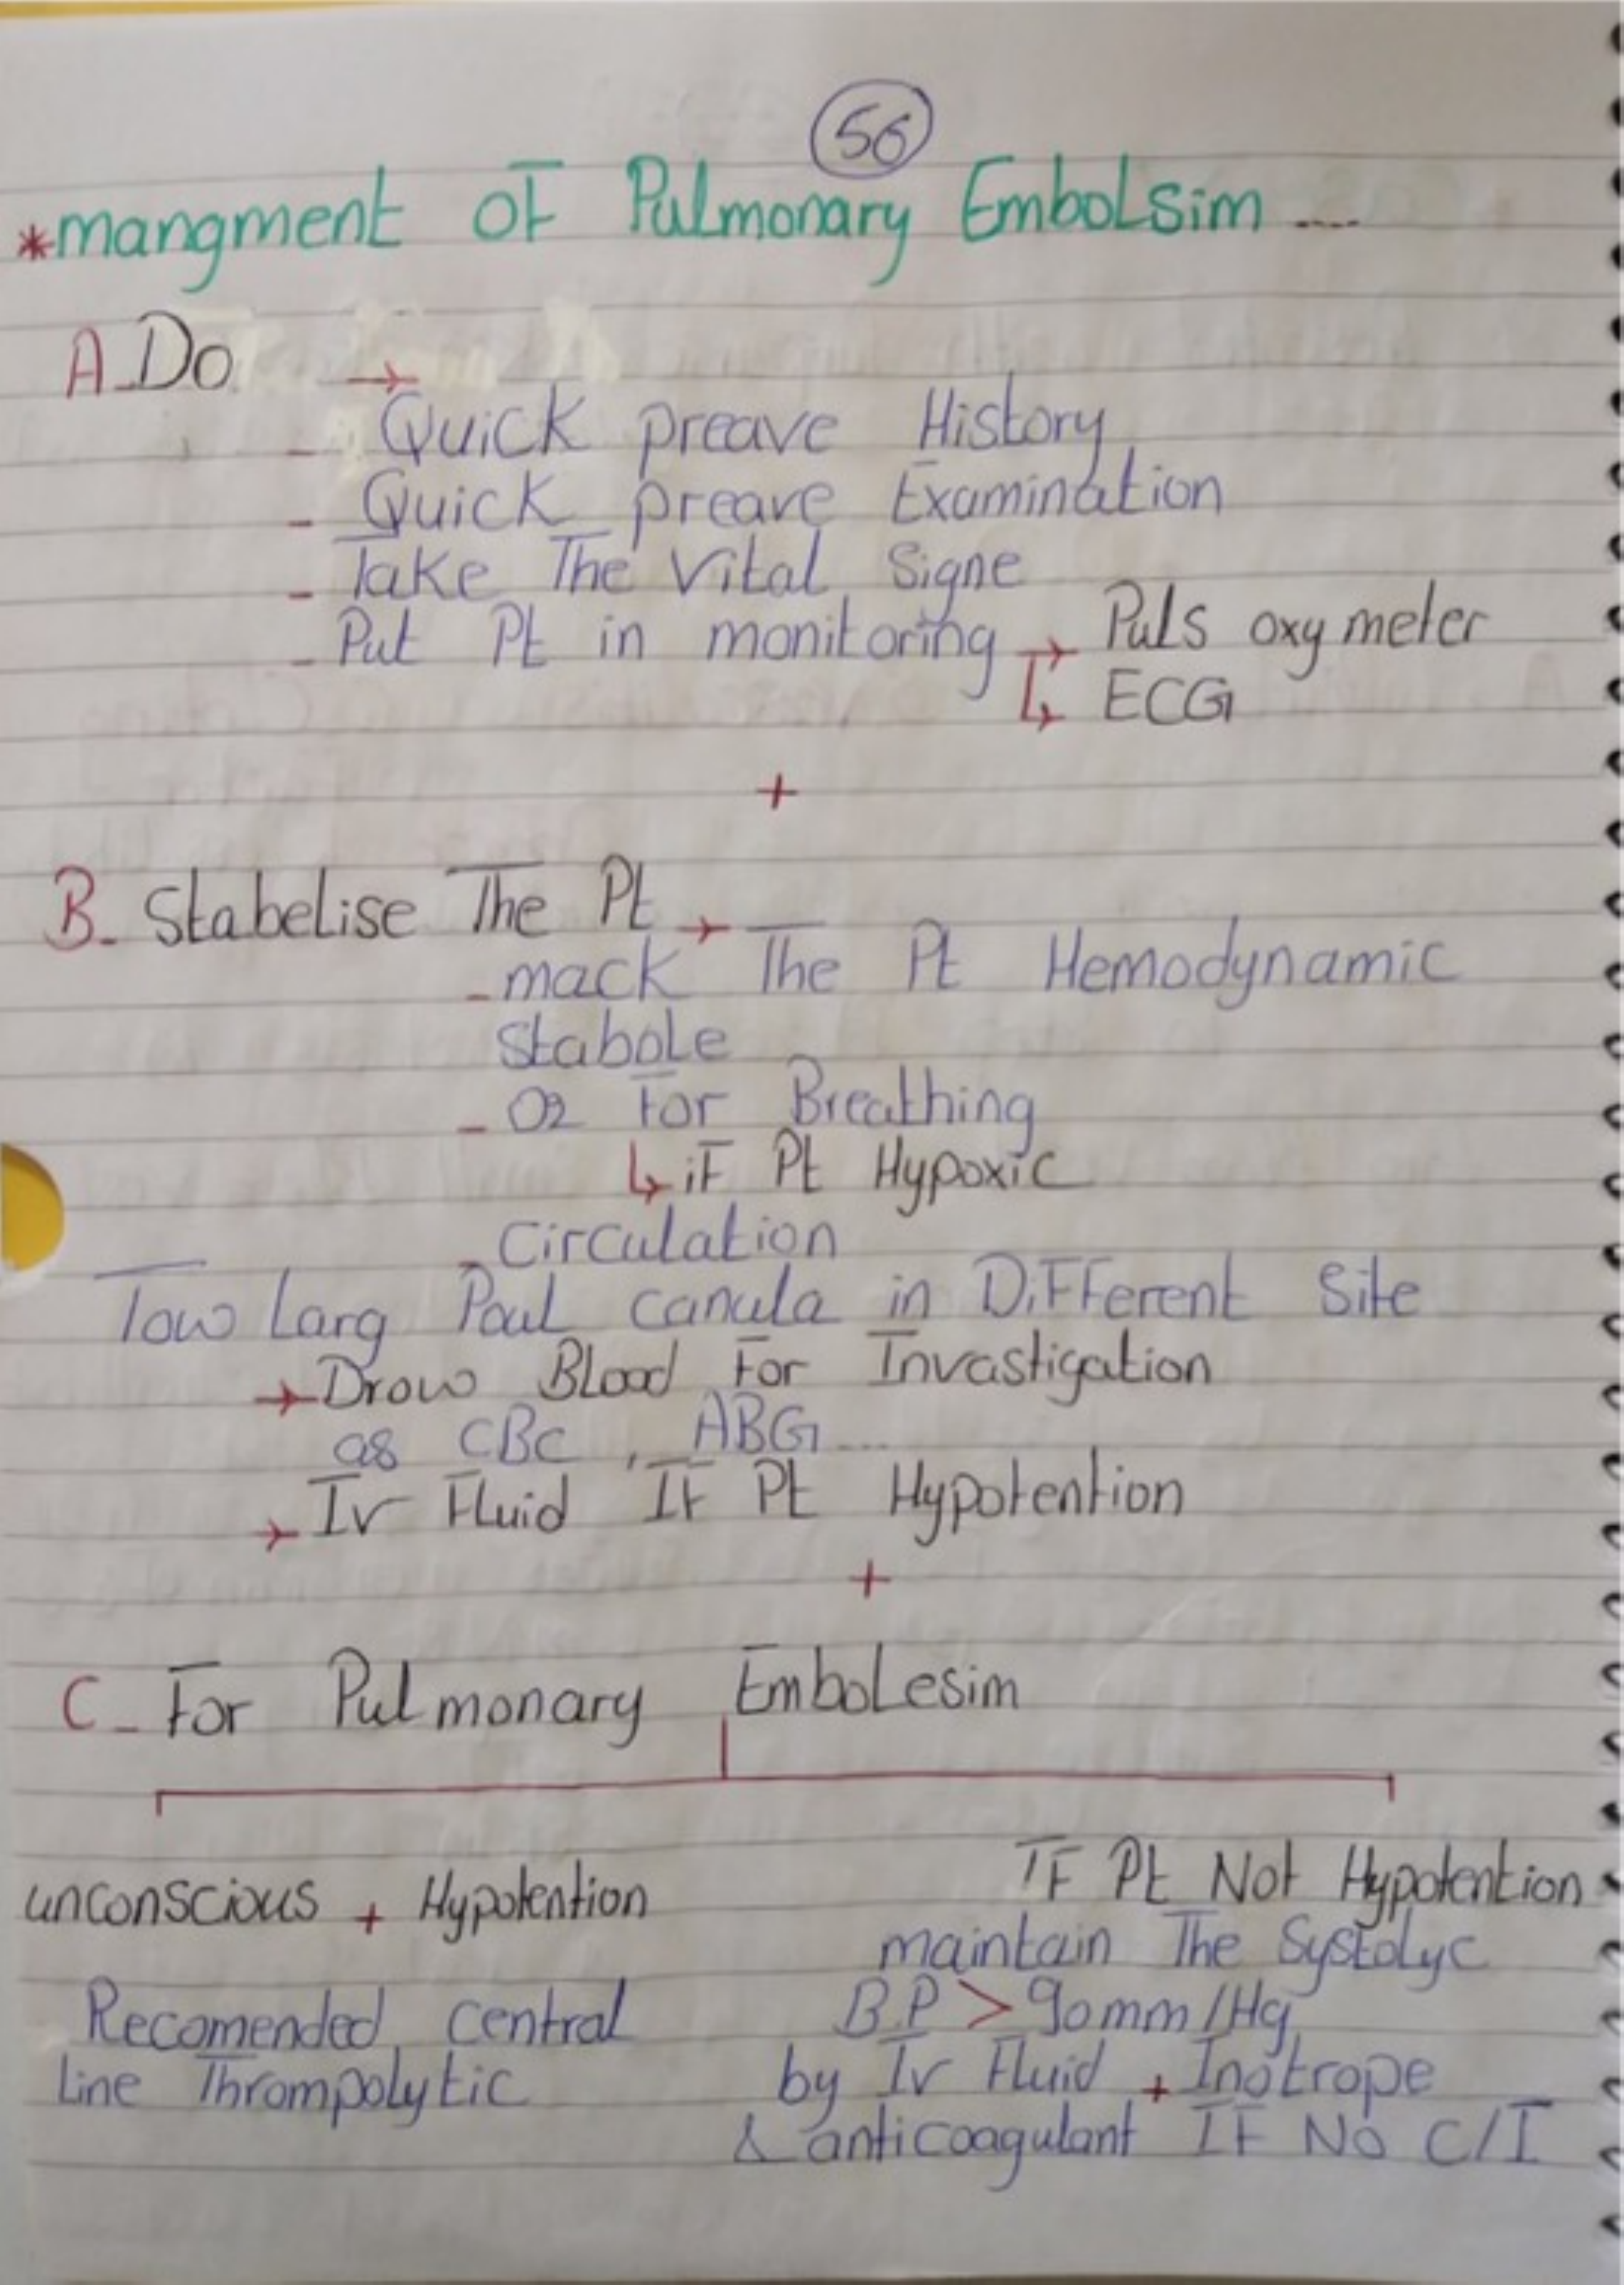 56
*mangment of Pulmonary Embolsim ....
A_Do →
- Quick preave History
- Quick preave Examination
- Take The Vital Signe
- Put Pt in monitoring → Puls oxymeter
↳ ECG
+
B_ Stabelise The Pt →
- mack The Pt Hemodynamic
stabole
- O2 For Breathing
↳ iF Pt Hypoxic
- Circulation
Tow Larg Poul canula in DiFFerent Site
→ Drow Blood For Invastigation
as CBC , ABG ...
→ Iv Fluid IF Pt Hypotention
+
C_ For Pulmonary Embolesim
unconscious + Hypotention
Recomended central
line Thrompolytic
IF Pt Not Hypotention
maintain The Systolyc
B.P > 90mm/Hg
by Iv Fluid + Inotrope
& anticoagulant IF No C/I